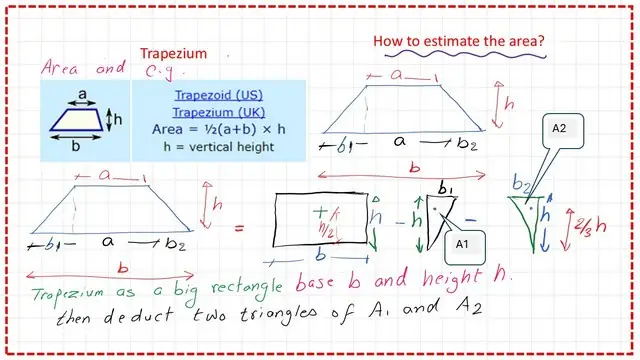 Trapezium
How to estimate the area?
Area and c.g.
a
h
b
Trapezoid (US)
Trapezium (UK)
Area = ½(a+b) × h
h = vertical height
a
h
b1 a b2
b
A2
a
h
b1 a b2
b
=
+ h/2 h
b
- h b1
A1
- b2
h 2/3 h
Trapezium as a big rectangle base b and height h.
then deduct two triangles of A1 and A2